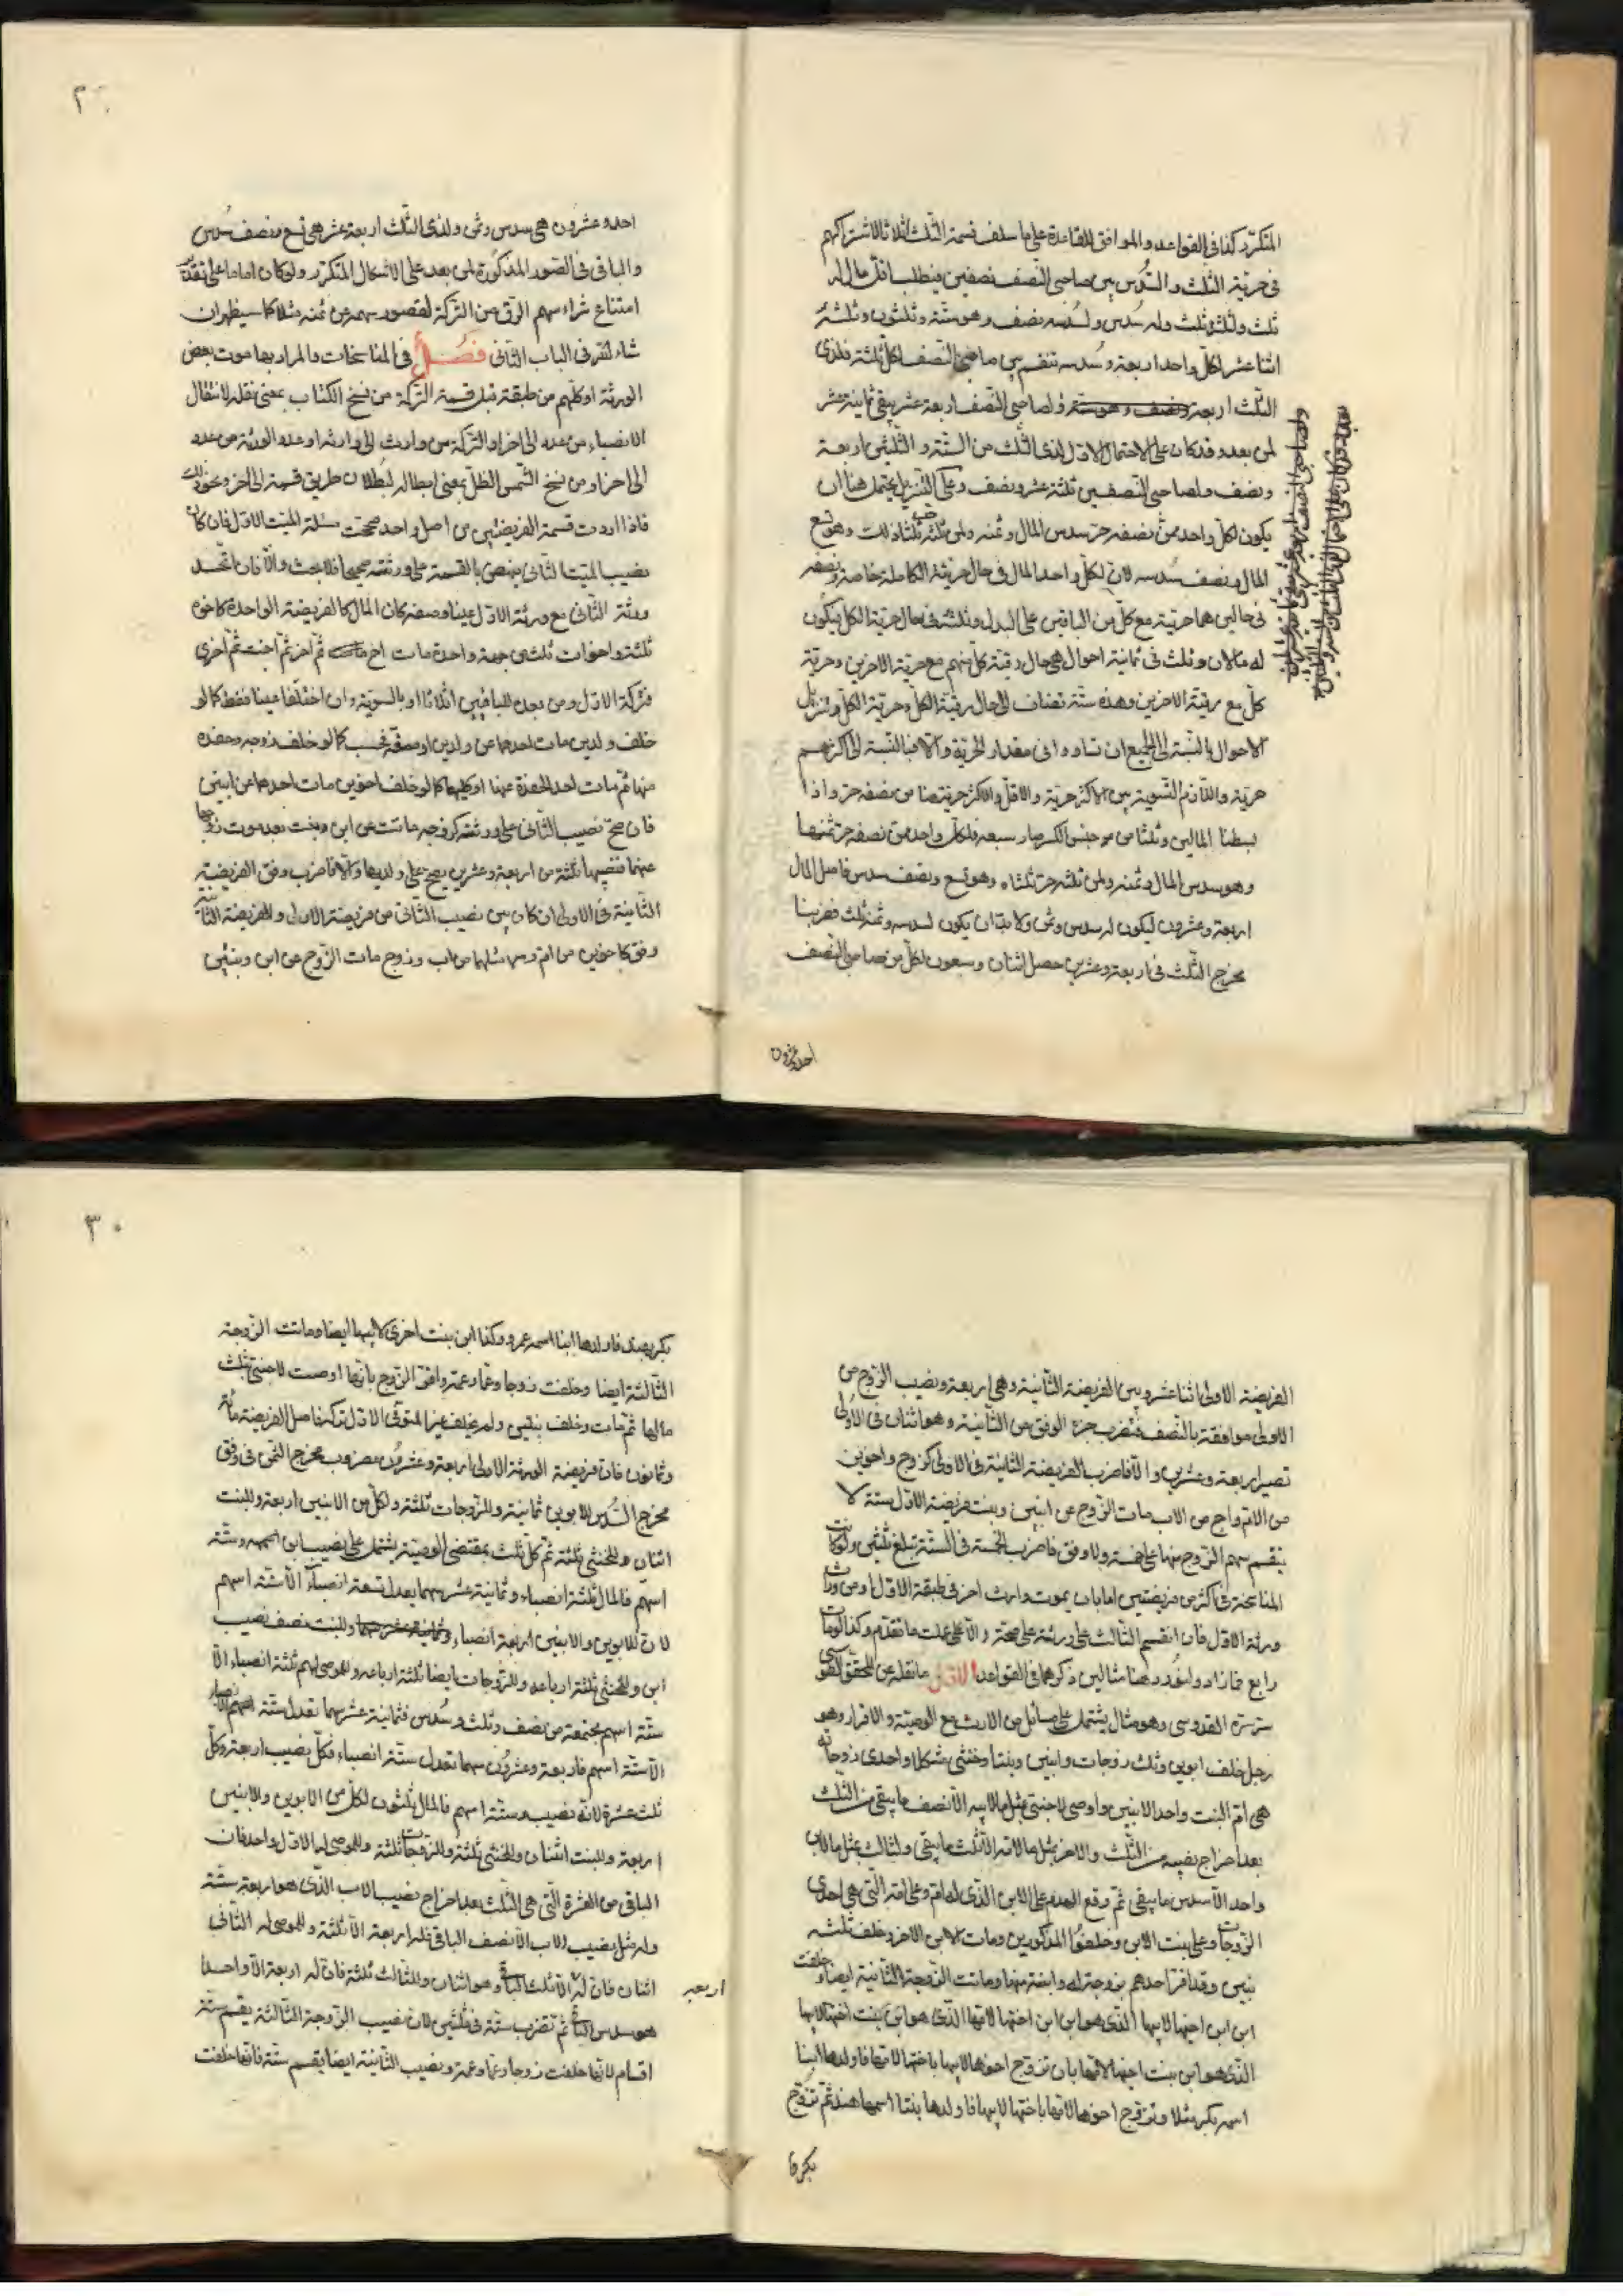 المتكرّر كذا في القواعد والموافق للقاعدة على ما سلف قسمة الثلث اثلاثا لاشتراكهم
في حرية الثلث والسّدس بين صاحبي النصف نصفين فيطلب اقل مال له
ثلث ولثلثه ثلث وله سدس ولسدسه نصف وهو ستة وثلثون وثلثه
اثنا عشر لكل واحد اربعة وسدسه تنقسم بين صاحبي النصف لكلّ ثلثة فلذي
الثلث اربعة ونصف وهو ستة ولصاحبي النصف اربعة عشر يبقى ثمانية عشر
لمن بعد وقد كان على الاحتمال الاول لذي الثلث من الستة والثلثين اربعة
ونصف ولصاحبي النصفين ثلثة عشر ونصف وعلى التنزيل يحتمل هنا ان
يكون لكل واحد ممن نصفه حرّ سدس المال وثمنه ولمن ثلثه حر ثلثا ذلك وهو تسع
المال ونصف سدسه لان لكلّ واحد المال في حال حريته الكاملة خاصة ونصفه
في حالين هما حريته مع كلّ من الباقين على البدل وثلثه في حال حرية الكل فيكون
له مالان وثلث في ثمانية احوال هي حال رقية كل منهم مع حرية الاخرين وحرية
كلّ مع رقية الاخرين وهذه ستة تضاف الى حال رقية الكل وحرية الكل وتنزيل
الاحوال بالنسبة الى الجميع ان تساووا في مقدار الحرية والا فبالنسبة الى اكثرهم
حرية واللازم التسوية بين الاكثر حرية والاقل والاكثر حرية هنا من نصفه حر واذا
بسطنا المالين وثلثا من جنس الكسر صار سبعة فلكل واحد ممن نصفه حر ثمنها
وهو سدس المال وثمنه ولمن ثلثه حر ثلثاه وهو تسع ونصف سدس فاصل المال
اربعة وعشرون ليكون له سدس وثمن ولا بد ان يكون لسدسه وثمنه ثلث فضربنا
مخرج الثلث في اربعة وعشرين حصل اثنان وسبعون لكل من صاحبي النصف
احد وعشرون
احد وعشرون هي سدس وثمن ولذي الثلث اربعة عشر هي تسع ونصف سدس
والباقي في الصور المذكورة لمن بعد على الاشكال المتكرّر ولو كان اماما على تقدير
امتناع شراء سهم الرق من التركة لقصور سهمه عن ثمنه مثلا كما سيظهر ان
شاء الله في الباب الثاني فصل في المناسخات والمراد بها موت بعض
الورثة او كلّهم من طبقة قبل قسمة التركة من نسخ الكتاب بمعنى نقله لانتقال
الانصباء من عدد الى اخر او التركة من وارث الى وارث او عدد الورثة من عدد
الى اخر او من نسخ الشمس الظل بمعنى ابطاله لبطلان طريق قسمة الى اخر ونحو ذلك
فاذا اردت قسمة الفريضتين من اصل واحد صححت مسئلة الميت الاول فان كان
نصيب الميت الثاني ينهض بالقسمة على ورثته صحيحا فلا بحث والّا فان اتحد
ورثة الثاني مع ورثة الاول عينا وصفة كان المال كالفريضة الواحدة كاخوة
ثلثة واخوات ثلث من جهة واحدة مات اخ ثم آخر ثم اخت ثم اخرى
فتركة الاول ومن بعده للباقين اثلاثا او بالسوية وان اختلفا عينا فقط كما لو
خلف ولدين مات احدهما عن ولدين او صفة فحسب كما لو خلف زوجه وحفدة
منها ثم مات احد الحفدة عنها او كليهما كما لو خلف اخوين مات احدهما عن ابنين
فان صح نصيب الثاني على ورثته كزوجه ماتت عن ابن وبنت بعد موت زوجها
عنهما فنصيبها ثلثة من اربعة وعشرين يصح على ولديها والا فاضرب وفق الفريضة
الثانية في الاولى ان كان بين نصيب الثاني من فريضة الاولى والفريضة الثانية
وفق كاخوين من ام ومثلهما من اب وزوج مات الزوج عن ابن وبنتين
الفريضة الاولى اثنا عشر وبين الفريضة الثانية وهي اربعة ونصيب الزوج من
الاولى موافقة بالنصف فتضرب جزء الوفق من الثانية وهو اثنان في الاولى
تصير اربعة وعشرين والا فاضرب الفريضة الثانية في الاولى كزوج واخوين
من الام واخ من الاب مات الزوج عن ابنين وبنت فريضة الاول ستة لا
ينقسم سهم الزوج منها على خمسة ولا وفق فاضرب الخمسة في الستة تبلغ ثلثين ولو كانت
المناسخة في اكثر من فريضتين اما بان يموت وارث اخر في طبقة الاول او من وراث
ورثة الاول فان انقسم الثالث على ورثته على صحة والا عملت ما تقدم وكذا لو مات
رابع فما زاد ولنورد هنا مثالين ذكرهما في القواعد الاول ما نقله عن المحقق الطوسي
قدس سره القدوسي وهو مثال يشتمل على مسائل من الارث مع الوصية والاقرار وهو
رجل خلف ابوين وثلث زوجات وابنين وبنتا وخنثى مشكلا واحدى زوجاته
هي ام البنت واحد الابنين واوصى لاجنبي بمثل ما لابيه الا نصف ما يبقى من الثلث
بعد اخراج نصيبه من الثلث والاخر بمثل ما لامه الا ثلث ما يبقى ولثالث بمثل ما لابن
واحد الا سدس ما يبقى ثم وقع الهدم على الابن الذي له ام وعلى امه التي هي احدى
الزوجات وعلى بنت الابن وخلفوا المذكورين ومات الابن الاخر وخلف ثلثة
بنين وقد اقر احدهم بزوجة له وابنة منها وماتت الزوجة الثانية ايضا وخلفت
ابن ابن اخيها لابيها الذي هو ابن ابن اختها لامها الذي هو ابن بنت اختها لابيها
الذي هو ابن بنت اخيها لامها بان تزوج اخوها لابيها باختها لامها فاولدها ابنا
اسمه بكر مثلا وتزوج اخوها لامها باختها لابيها فاولدها بنتا اسمها هند ثم تزوج
بكر بهند فاولدها ابنا اسمه عمرو وكذا ابن بنت اخرى لابيها ايضا وماتت الزوجة
الثالثة ايضا وخلفت زوجا وعما وعمة واقر الزوج بانها اوصت لاجنبي بثلث
مالها ثم مات وخلف بنتين ولم يخلف غير المتوفى الاول تركة فاصل الفريضة مائة
وثمانون فان فريضة الورثة الاولى اربعة وعشرون مضروب مخرج الثمن في وفق
مخرج السّدس للابوين ثمانية وللزوجات ثلثة ولكل من الابنين اربعة وللبنت
اثنان وللخنثى ثلثة ثم كل ثلث بمقتضى الوصية يشتمل على نصيب ابن اسهمه وستة
اسهم فالمال ثلثة انصباء وثمانية عشر سهما يعدل تسعة انصباء الا ستة اسهم
لان للابوين والابنين اربعة انصباء وثمانية عشر سهما وللبنت نصف نصيب
ابن وللخنثى ثلثة ارباعه وللزوجات ايضا ثلثة ارباعه وللموصى لهم ثلثة انصباء الا
ستة اسهم مجتمعة من نصف وثلث وسدس فثمانية عشر سهما تعدل ستة انصباء
الا ستة اسهم فاربعة وعشرون سهما تعدل ستة انصباء فكل نصيب اربعة وكل
ثلث عشرة لانه نصيب وستة اسهم فالمال ثلثون لكل من الابوين والابنين
اربعة وللبنت اثنان وللخنثى ثلثة وللزوجات ثلثة وللموصى له الاول واحد فان
الباقي من العشرة التي هي الثلث بعد اخراج نصيب الاب الذي هو اربعة ستة
وله مثل نصيب الاب الا نصف الباقي فله اربعة الا ثلثة وللموصى له الثاني
اثنان فان له اربعة الا ثلث الباقي وهو اثنان وللثالث ثلثة فان له اربعة الا واحدا
هو سدس الباقي ثم تضرب ستة في ثلثين لان نصيب الزوجة الثالثة يقسم ستة
اقسام لانها خلفت زوجا وعما وعمة ونصيب الثانية ايضا يقسم ستة فانها خلفت
٣٠